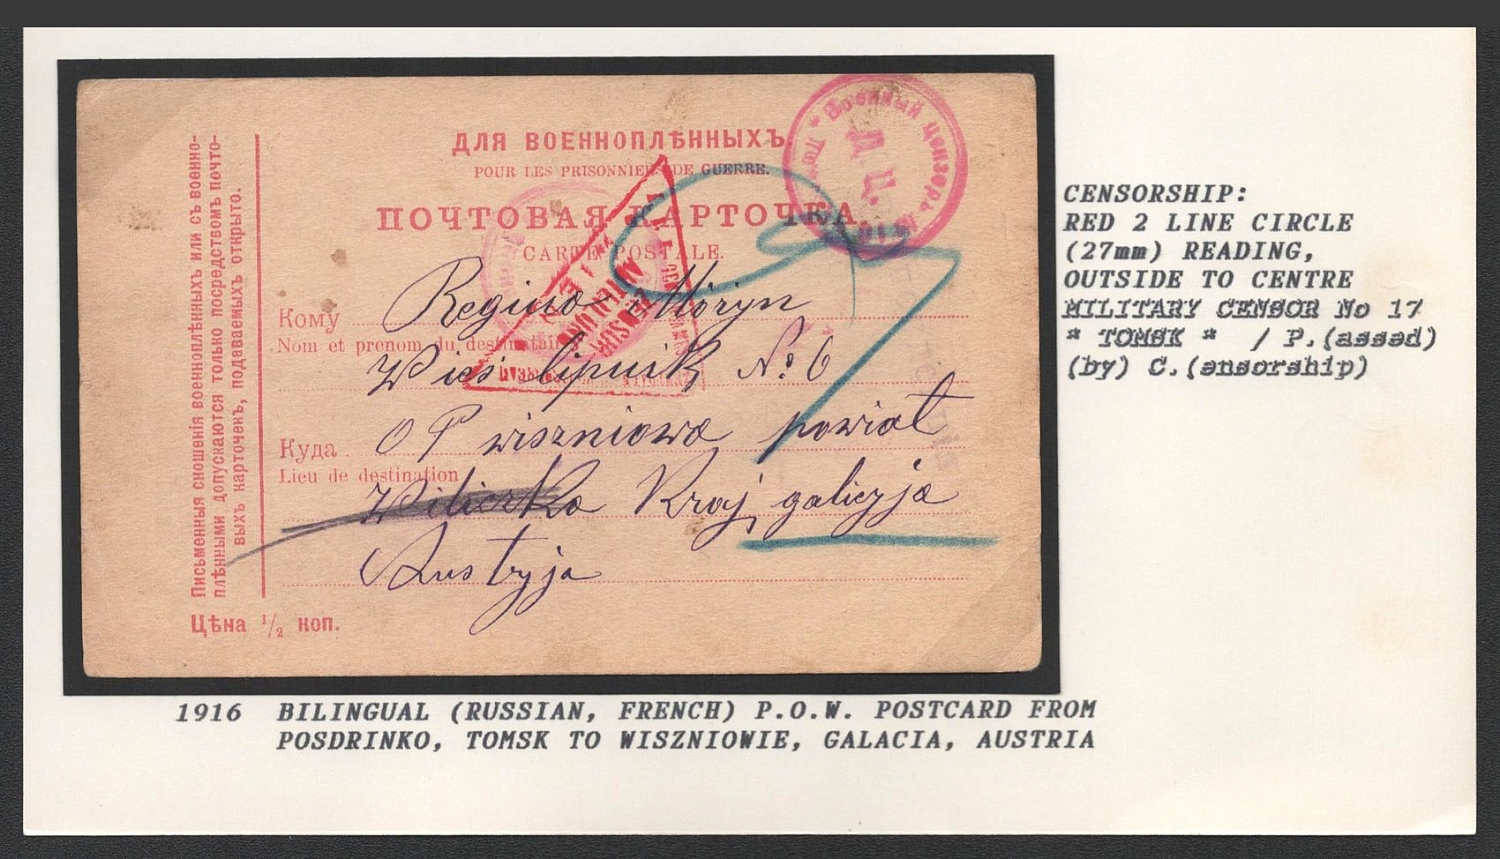 ДЛЯ ВОЕННОПЛѢННЫХЪ.
POUR LES PRISONNIERS DE GUERRE.
ПОЧТОВАЯ КАРТОЧКА
CARTE POSTALE.
Военный Цензоръ
Д.Ц.
Кому
Regina Móryn
Nom et prénom du destinataire
Wieś lipnik No 6
Куда
OP wiszniowa powiat
Lieu de destination
Wiliczka Kraj galicyja
Austryja
Письменныя сношенія военноплѣнныхъ или съ военно-
плѣнными допускаются только посредствомъ почто-
выхъ карточекъ, подаваемыхъ открыто.
Цѣна 1/2 коп.
CENSORSHIP:
RED 2 LINE CIRCLE
(27mm) READING,
OUTSIDE TO CENTRE
MILITARY CENSOR No 17
* TOMSK * / P.(assed)
(by) C.(ensorship)
1916 BILINGUAL (RUSSIAN, FRENCH) P.O.W. POSTCARD FROM
POSDRINKO, TOMSK TO WISZNIOWIE, GALACIA, AUSTRIA